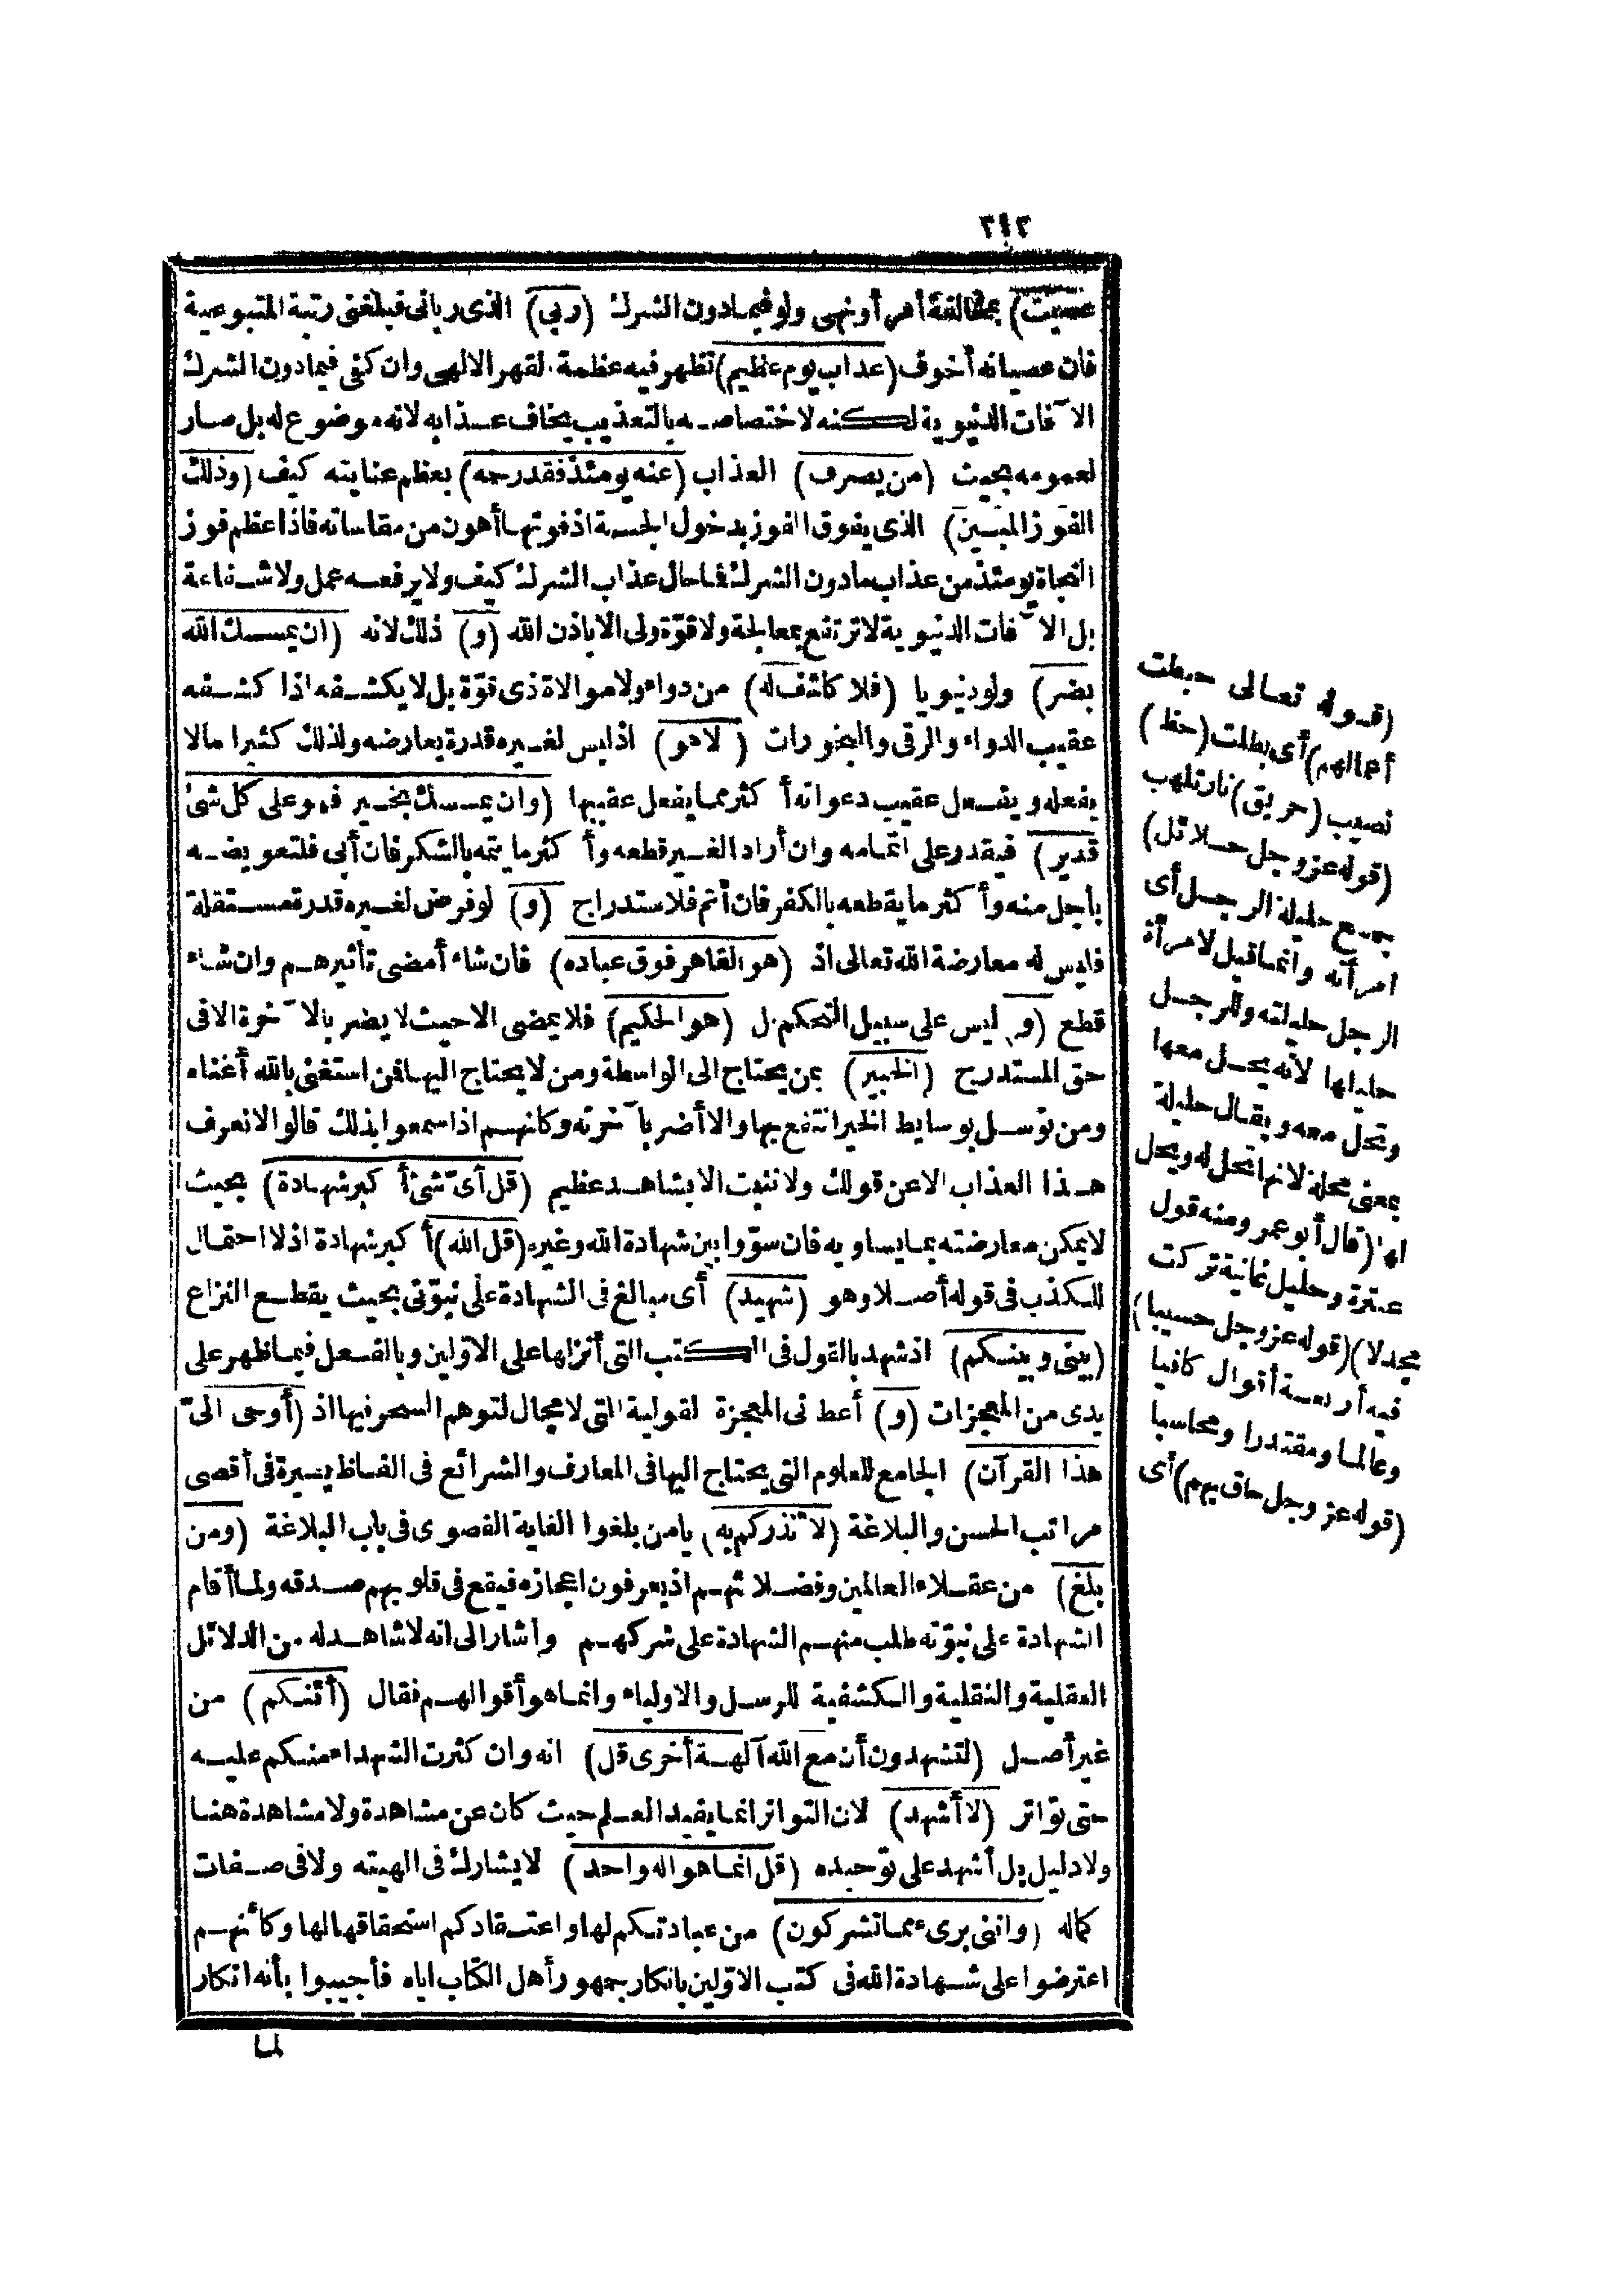 ٢١٢
عصيت) بمخالفة أمر أو نهى ولو فيما دون الشرك (ربي) الذى ربانى فبلغنى رتبة المتبوعية
فان عصيانه أخوف (عذاب يوم عظيم) تظهر فيه عظمة القهر الالهى وان كفى فيما دون الشرك
الآفات الدنيوية لكنه لاختصاصه بالتعذيب يخاف عذابه لانه موضوع له بل صار
لعمومه بحيث (من يصرف) العذاب (عنه يومئذ فقد رحمه) بعظم عنايته كيف (وذلك
الفوز المبين) الذى يفوق الفوز بدخول الجنة اذ فوتها أهون من مقاساته فاذا عظم فوز
النجاة يومئذ من عذاب ما دون الشرك فما حال عذاب الشرك كيف ولا يرفعه عمل ولا شفاعة
بل الآفات الدنيوية لا ترتفع بمعالجة ولا قوّة ولى الا باذن الله (و) ذلك لانه (ان يمسسك الله
بضر) ولو دنيويا (فلا كاشف له) من دواء ولا موالاة ذى قوّة بل لا يكشفه اذا كشفه
عقيب الدواء والرقى والبخورات (الا هو) اذ ليس لغيره قدرة يعارضه ولذلك كثيرا ما لا
يفعله ويفعل عقيب دعواته أكثر مما يفعل عقيبها (وان يمسسك بخير فهو على كل شئ
قدير) فيقدر على اتمامه وان أراد الغير قطعه وأكثر ما يتمه بالشكر فان أبى فلتعويضه
بأجل منه وأكثر ما يقطعه بالكفر فان أتم فلاستدراج (و) لو فرض لغيره قدرة مستقلة
فليس له معارضة الله تعالى اذ (هو القاهر فوق عباده) فان شاء أمضى تأثيرهم وان شاء
قطع (و) ليس على سبيل التحكم بل (هو الحكيم) فلا يمضى الا حيث لا يضر بالآخرة الا فى
حق المستدرج (الخبير) بمن يحتاج الى الواسطة ومن لا يحتاج اليها فمن استغنى بالله أغناه
ومن توسل بوسايط الخير انتفع بها والا أضر بآخرته وكانهم اذا سمعوا بذلك قالوا لا نعرف
هذا العذاب الا عن قولك ولا نثبت الا بشاهد عظيم (قل أىّ شئ أكبر شهادة) بحيث
لا يمكن معارضته بما يساويه فان سوّوا بين شهادة الله وغيره (قل الله) أكبر شهادة اذ لا احتمال
للكذب فى قوله أصلا وهو (شهيد) أى مبالغ فى الشهادة على نبوّتى بحيث يقطع النزاع
(بينى وبينكم) اذ شهد بالقول فى الكتب التى أنزلها على الاوّلين وبالفعل فيما ظهر على
يدى من المعجزات (و) أعطانى المعجزة القولية التى لا مجال لتوهم السحر فيها اذ (أوحى الىّ
هذا القرآن) الجامع للعلوم التى يحتاج اليها فى المعارف والشرائع فى الفاظ يسيرة فى أقصى
مراتب الحسن والبلاغة (لانذركم به) يا من بلغوا الغاية القصوى فى باب البلاغة (ومن
بلغ) من عقلاء العالمين وفضلائهم اذ يعرفون اعجازه فيقع فى قلوبهم صدقه ولما أقام
الشهادة على نبوّته طلب منهم الشهادة على شركهم وأشار الى انه لا شاهد له من الدلائل
العقلية والنقلية والكشفية للرسل والاولياء وانما هو أقوالهم فقال (أئنكم) من
غير أصل (لتشهدون أن مع الله آلهة أخرى قل) انه وان كثرت الشهداء منكم عليه
حتى تواتر (لا أشهد) لان التواتر انما يفيد العلم حيث كان عن مشاهدة ولا مشاهدة هنا
ولا دليل بل أشهد على توحيده (قل انما هو اله واحد) لا يشارك فى الهيته ولا فى صفات
كماله (واننى برىء مما تشركون) من عبادتكم لها واعتقادكم استحقاقها لها وكأنهم
اعترضوا على شهادة الله فى كتب الاوّلين بانكار جمهور أهل الكتاب اياه فأجيبوا بأنه انكار
لما
(قوله تعالى حبطت
أعمالهم) أى بطلت (حظ)
نصيب (حريق) نار تلهب
(قوله عز وجل حلائل)
جمع حليلة الرجل أى
امرأته وانما قيل لامرأة
الرجل حليلته وللرجل
حليلها لأنه يحل معها
وتحل معه ويقال حليلة
بمعنى محلة لانها تحل له ويحل
لها (قال أبو عمر ومنه قول
عنترة وحليل غانية تركت
مجدلا) (قوله عز وجل حسيبا)
فيه أربعة أقوال كافيا
وعالما ومقتدرا ومحاسبا
(قوله عز وجل حاق بهم) أى